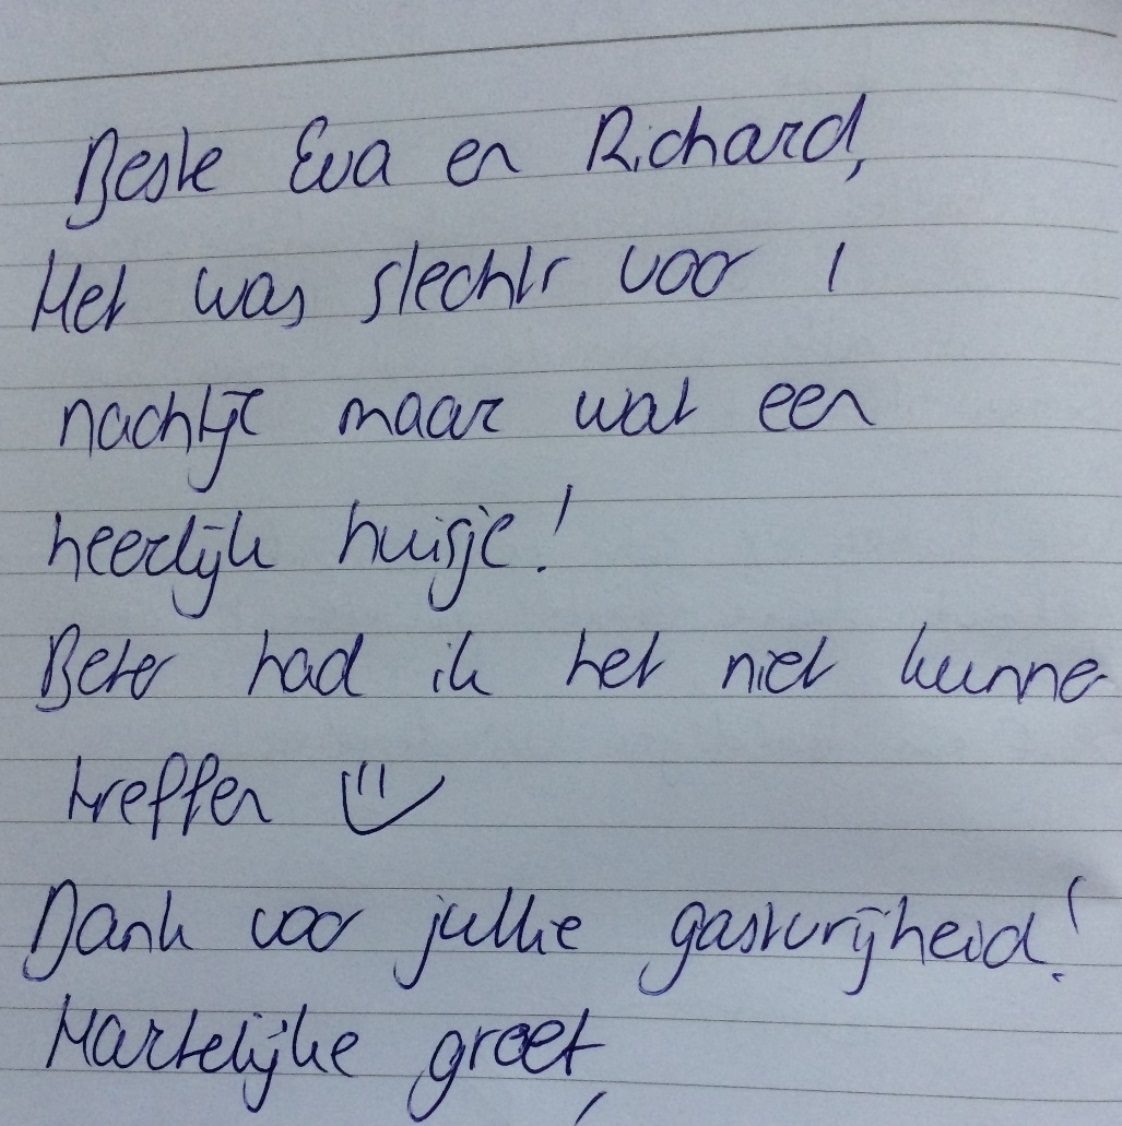 Beste Eva en Richard,
Het was slechts voor 1
nachtje maar wat een
heerlijk huisje!
Beter had ik het niet kunnen
treffen
Dank voor jullie gastvrijheid!
Hartelijke groet,